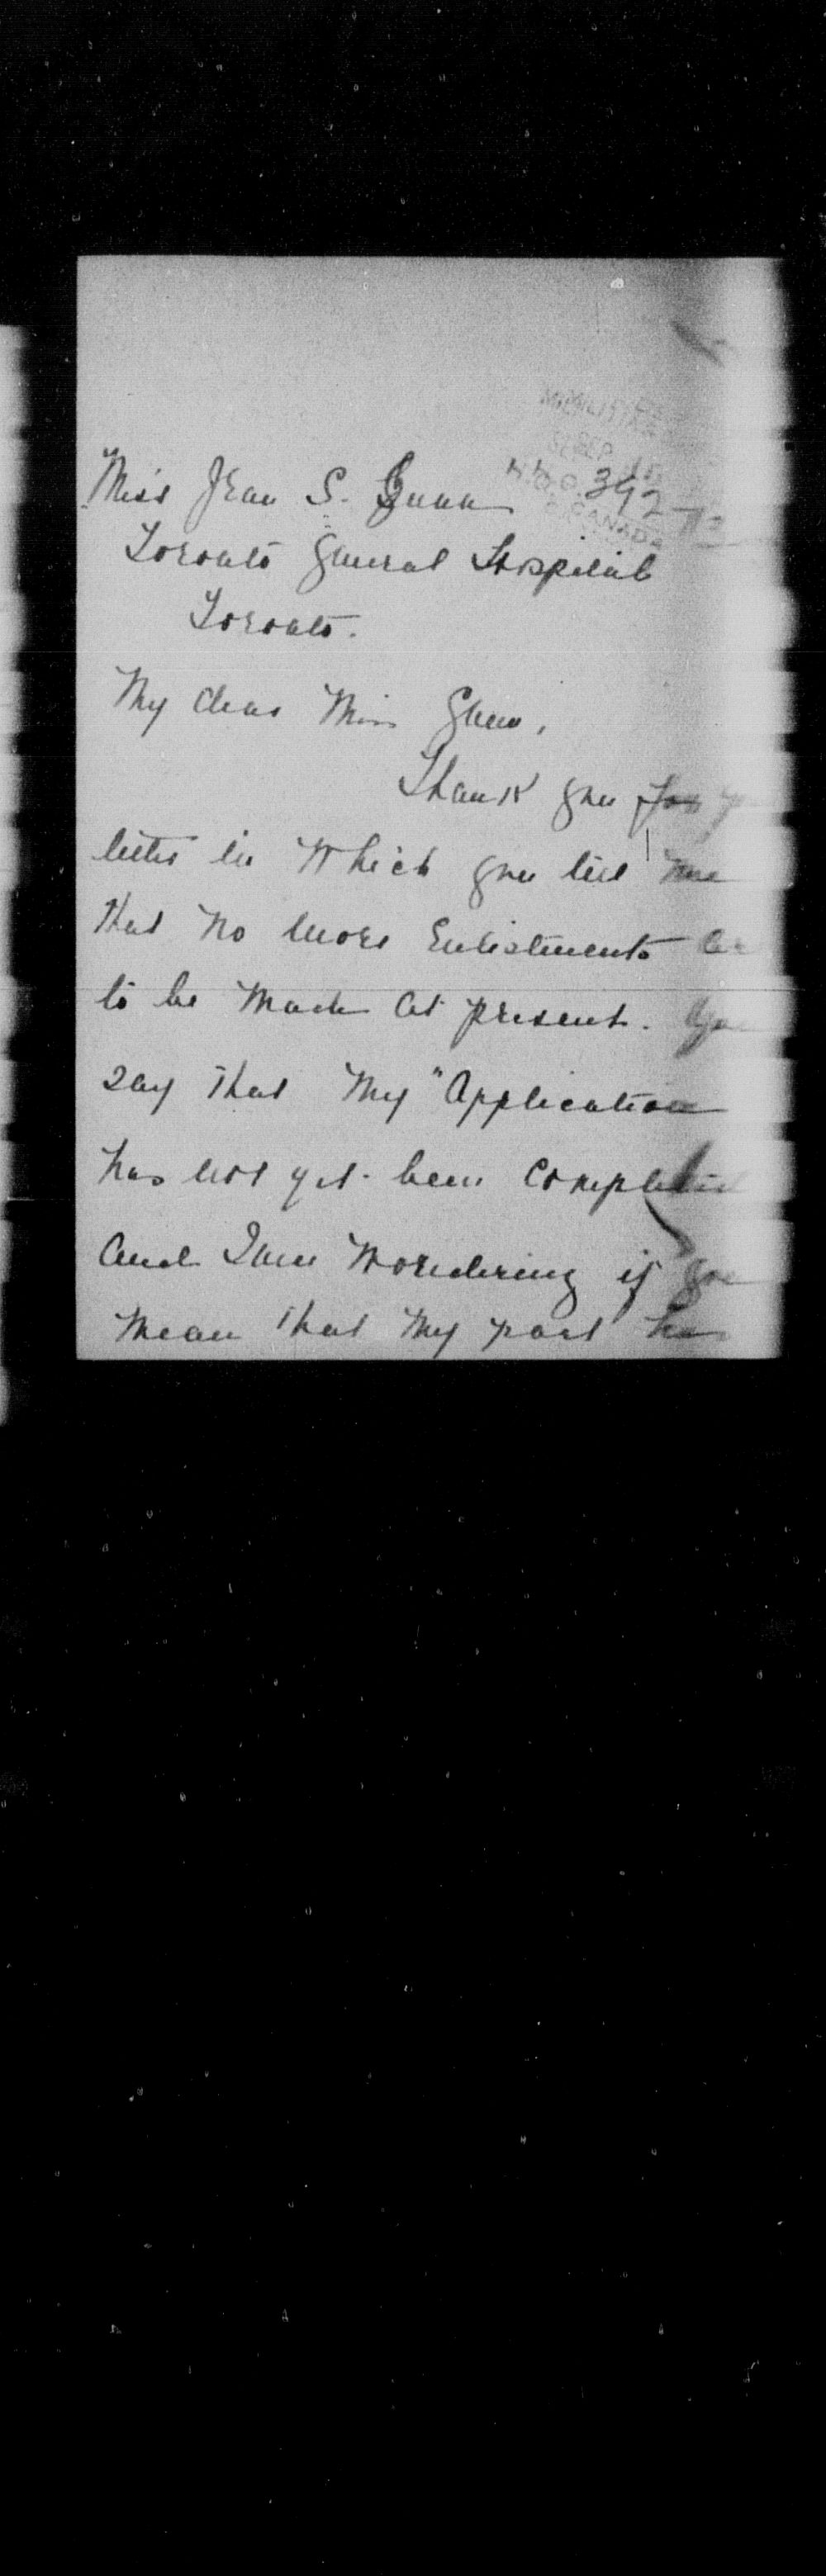 MILITIA
SEP
H.Q. 392
CANADA
Miss Jean S. Gunn
Toronto General Hospital
Toronto.
My dear Miss Gunn,
Thank you for
letter in which you tell me
that no more Enlistments are
to be made at present. You
say that my "Application
has not yet been completed
and I am wondering if you
mean that my part has